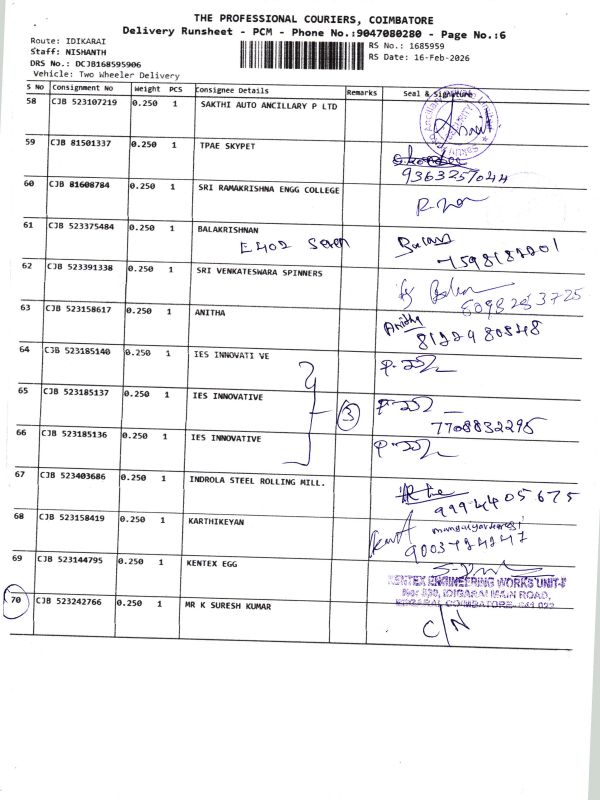 THE PROFESSIONAL COURIERS, COIMBATORE
Delivery Runsheet - PCM - Phone No.:9047080280 - Page No.:6
Route: IDIKARAI
Staff: NISHANTH
DRS No.: DCJB168595906
Vehicle: Two Wheeler Delivery
RS No.: 1685959
RS Date: 16-Feb-2026
S No Consignment No Weight PCS Consignee Details Remarks Seal & Signature
58 CJB 523107219 0.250 1 SAKTHI AUTO ANCILLARY P LTD
59 CJB 81501337 0.250 1 TPAE SKYPET
9363257044
60 CJB 81608784 0.250 1 SRI RAMAKRISHNA ENGG COLLEGE
61 CJB 523375484 0.250 1 BALAKRISHNAN
E402
62 CJB 523391338 0.250 1 SRI VENKATESWARA SPINNERS
63 CJB 523158617 0.250 1 ANITHA Anitha
64 CJB 523185140 0.250 1 IES INNOVATI VE
65 CJB 523185137 0.250 1 IES INNOVATIVE 3
7708832295
66 CJB 523185136 0.250 1 IES INNOVATIVE
67 CJB 523403686 0.250 1 INDROLA STEEL ROLLING MILL.
68 CJB 523158419 0.250 1 KARTHIKEYAN
69 CJB 523144795 0.250 1 KENTEX EGG
KENTEX ENGINEERING WORKS UNIT-
IDIGARAI MAIN ROAD,
70 CJB 523242766 0.250 1 MR K SURESH KUMAR
C/N